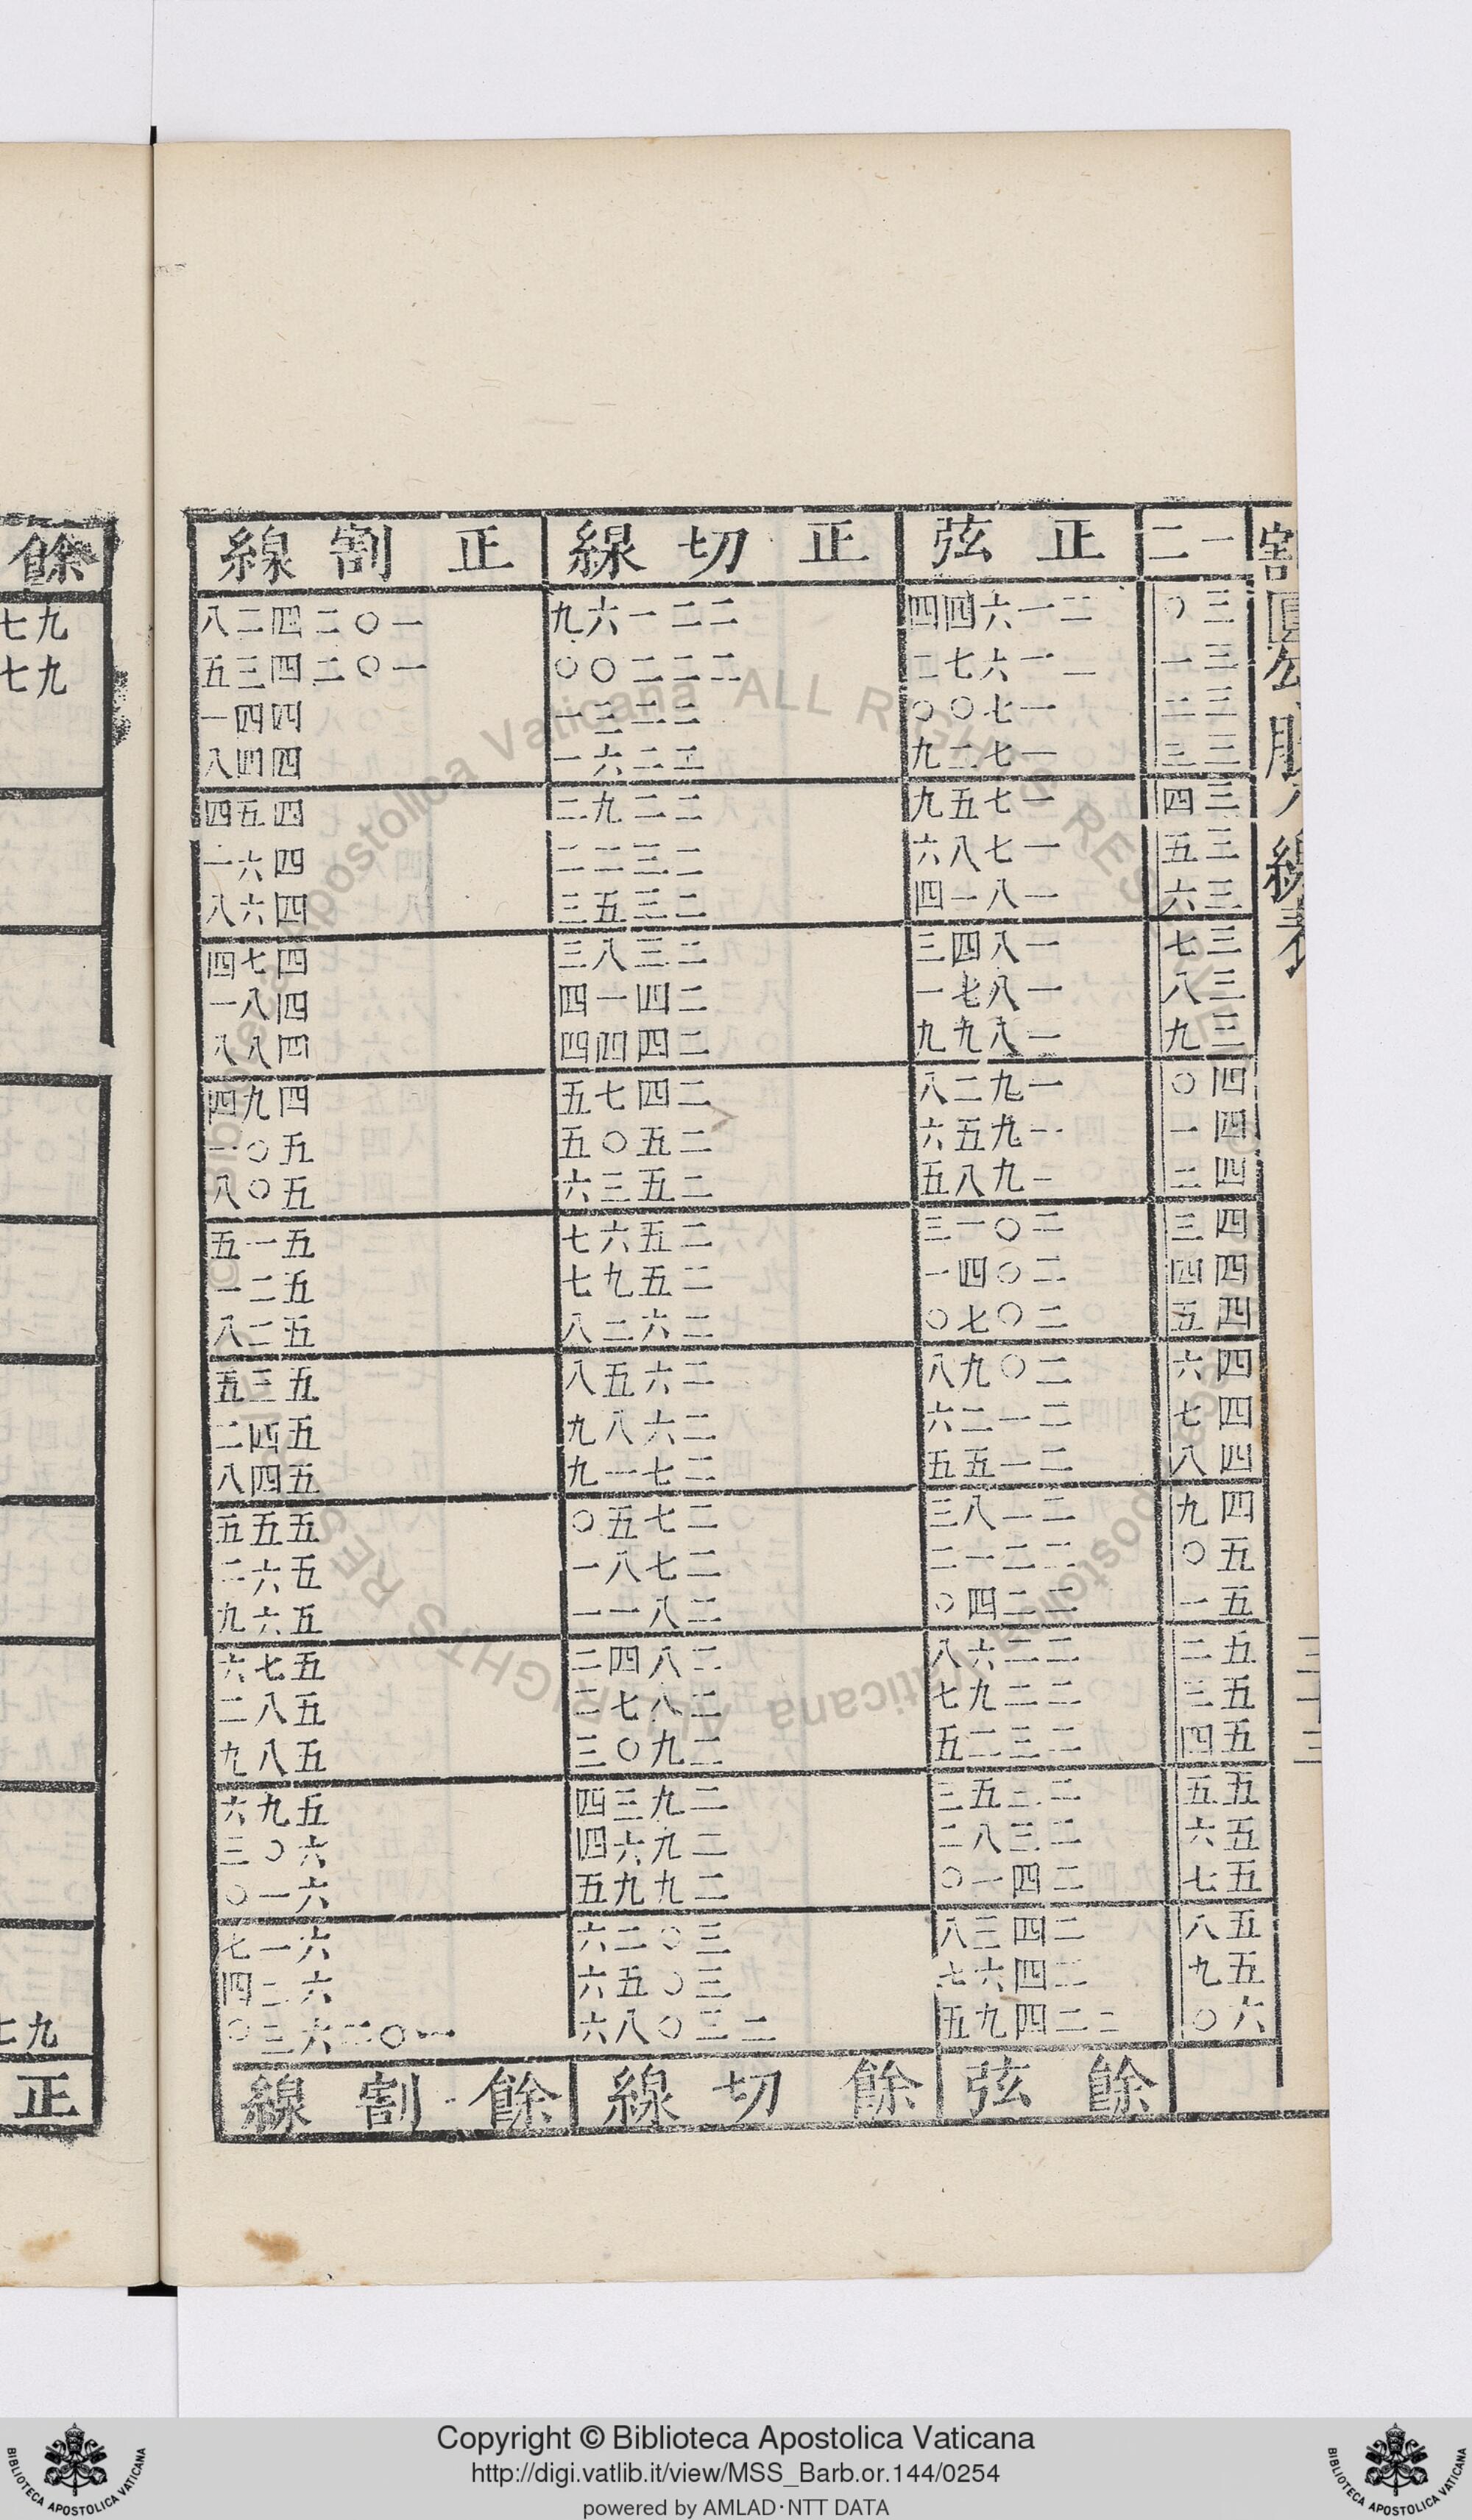 割圓勾股八線表
三十三
一二 正弦 正切線 正割線
三〇 二一六四四 二二一六九 一〇二四二八
三一 二一六七二 二二二〇〇 一〇二四三五
三二 一七〇〇 二二三一 四四一
三三 一七二九 二二六一 四四八
三四 一七五九 二二九二 四五四
三五 一七八六 二三二二 四六一
三六 一八一四 二三五三 四六八
三七 一八四三 二三八三 四七四
三八 一八七一 二四一四 四八一
三九 一八九九 二四四四 四八八
四〇 一九二八 二四七五 四九四
四一 一九五六 二五〇五 五〇一
四二 一九八五 二五三六 五〇八
四三 二〇一三 二五六七 五一五
四四 二〇四一 二五九七 五二一
四五 二〇七〇 二六二八 五二八
四六 二〇九八 二六五八 五三五
四七 二一二六 二六八九 五四二
四八 二一五五 二七一九 五四八
四九 二一八三 二七五〇 五五五
五〇 二二一二 二七八一 五六二
五一 二二四〇 二八一一 五六九
五二 二二六八 二八四二 五七六
五三 二二九七 二八七二 五八二
五四 二三二五 二九〇三 五八九
五五 二三五三 二九三四 五九六
五六 二三八二 二九六四 六〇三
五七 二四一〇 二九九五 六一〇
五八 二四三八 三〇二六 六一七
五九 二四六七 三〇五六 六二四
六〇 二二四九五 二三〇八六 一〇二六三〇
餘弦 餘切線 餘割線
餘
九七
九七
九七
正
Copyright © Biblioteca Apostolica Vaticana
http://digi.vatlib.it/view/MSS_Barb.or.144/0254
powered by AMLAD·NTT DATA